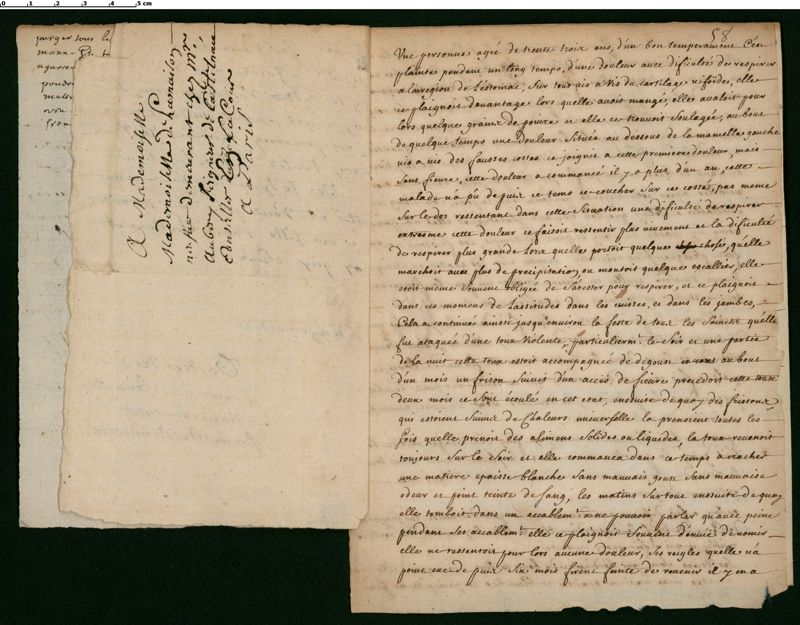 0 1 2 3 4 5 cm
purger tous le
A Mademoiselle
Mademoiselle de
demeurant chez Mr
Aubry seigneur de Castelnau
Conseiller
A Paris
58
Vne personne agée de trente trois ans, d'un bon temperament s'est
plainte pendant un long temps, d'une douleur avec dificulté de respirer
a la region de l'estomac, sur tout vis a vis du cartilage xifoïde, elle
ce plaignoit davantage lors quelle avoit mangé, elle avaloit pour
lors quelque grains de poivre et elle ce trouvoit soulagée, au bout
de quelque temps une douleur située au dessous de la mamelle gauche
vis a vis des fausses costes ce joignit a cette premiere douleur, mais
sans fievre, cette douleur a commancé il y a plus d'un an, cette
malade n'a pu depuis ce tems ce coucher sur ce costé, pas meme
sur le dos ressentant dans cette situation une dificulté de respirer
extreme cette douleur ce faisoit ressentir plus vivement et la dificulté
de respirer plus grande lors quelle portoit quelque chose, quelle
marchoit avec plus de precipitation, ou montoit quelque escallier, elle
etoit même souvent obligée de s'arester pour respirer, et ce plaignoit
dans ces momens de lassitudes dans les cuisses, et dans les jambes,
Cela a continué ainsi jusqu'environ la feste de tous les saincts quelle
fut ataquée d'une toux violente, particuliermt. le soir et une partie
de la nuit cette toux estoit accompagnée de degoust au bout
d'un mois un frison suivis d'un accès de fievre precedoit cette toux
deux mois ce sont écoulé en cet etat, ensuite de quoy des frissons
qui estoient suivis de chaleurs universelle la prenoient toutes les
fois quelle prenoit des alimens solides ou liquides, la toux revenoit
toujours sur le soir et elle commanca dans ce temps a cracher
une matiere epaisse blanche sans mauvais goust sans mauvaise
odeur et point teinte de sang, les matins sur tout ensuite de quoy
elle tomboit dans un accablemt. a ne pouvoir parler qu'avec peine
pendant ses accablemt. elle ce plaignoit souvent d'envie de vomir
elle ne ressentoit pour lors aucune douleur, ses reigles quelle n'a
point eue depuis six mois firent feinte de revenir il y en a